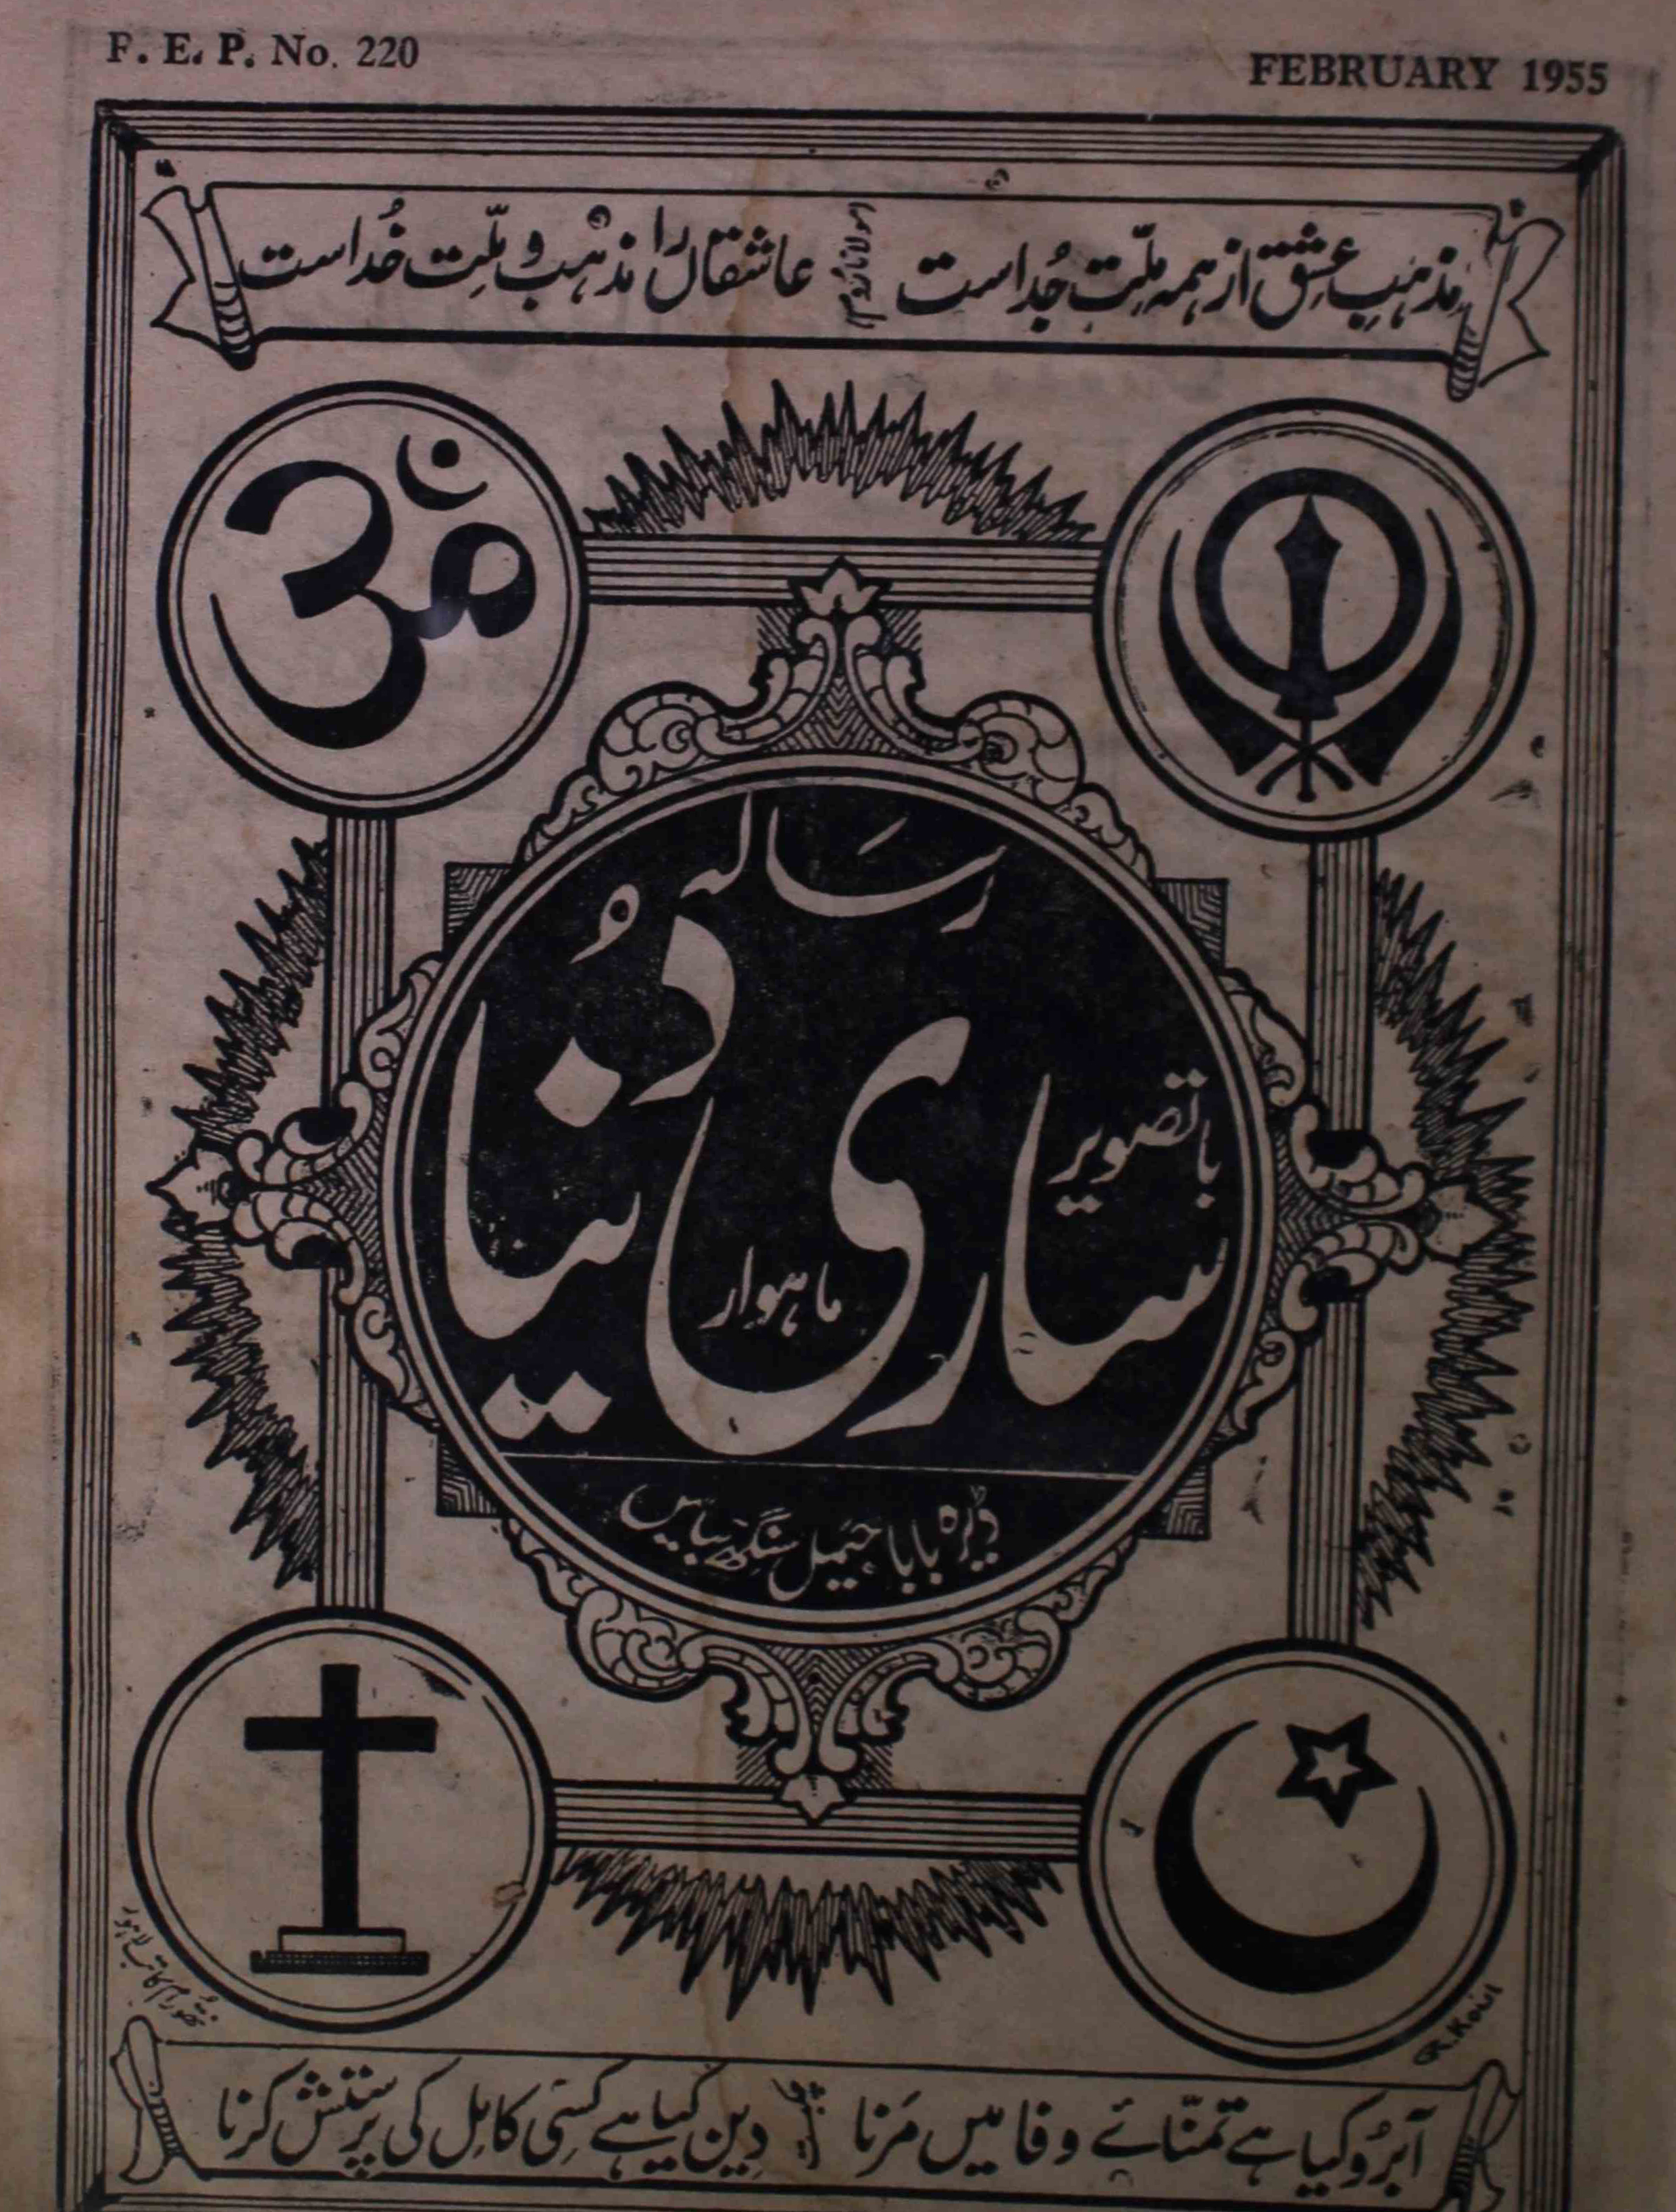 F. E. P. No. 220
FEBRUARY 1955
مذہبِ عشق از ہمہ مِلّت جُداست
مولانا روم
عاشقاں را مذہب و مِلّت خُداست
رسالہ
ساری دُنیا
باتصویر
ماہوار
ڈیرہ بابا جیمل سنگھ بیاس
کاتب لاہور
R. Koul
آبرُو کیا ہے تمنّائے وفا میں مَرنا
دِین کیا ہے کسِی کامِل کی پرستش کرنا